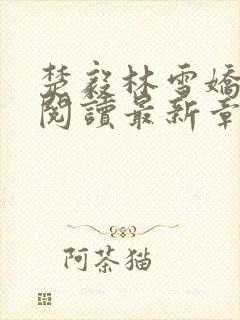 楚毅林雪嬌
閱讀最新章
阿茶猫